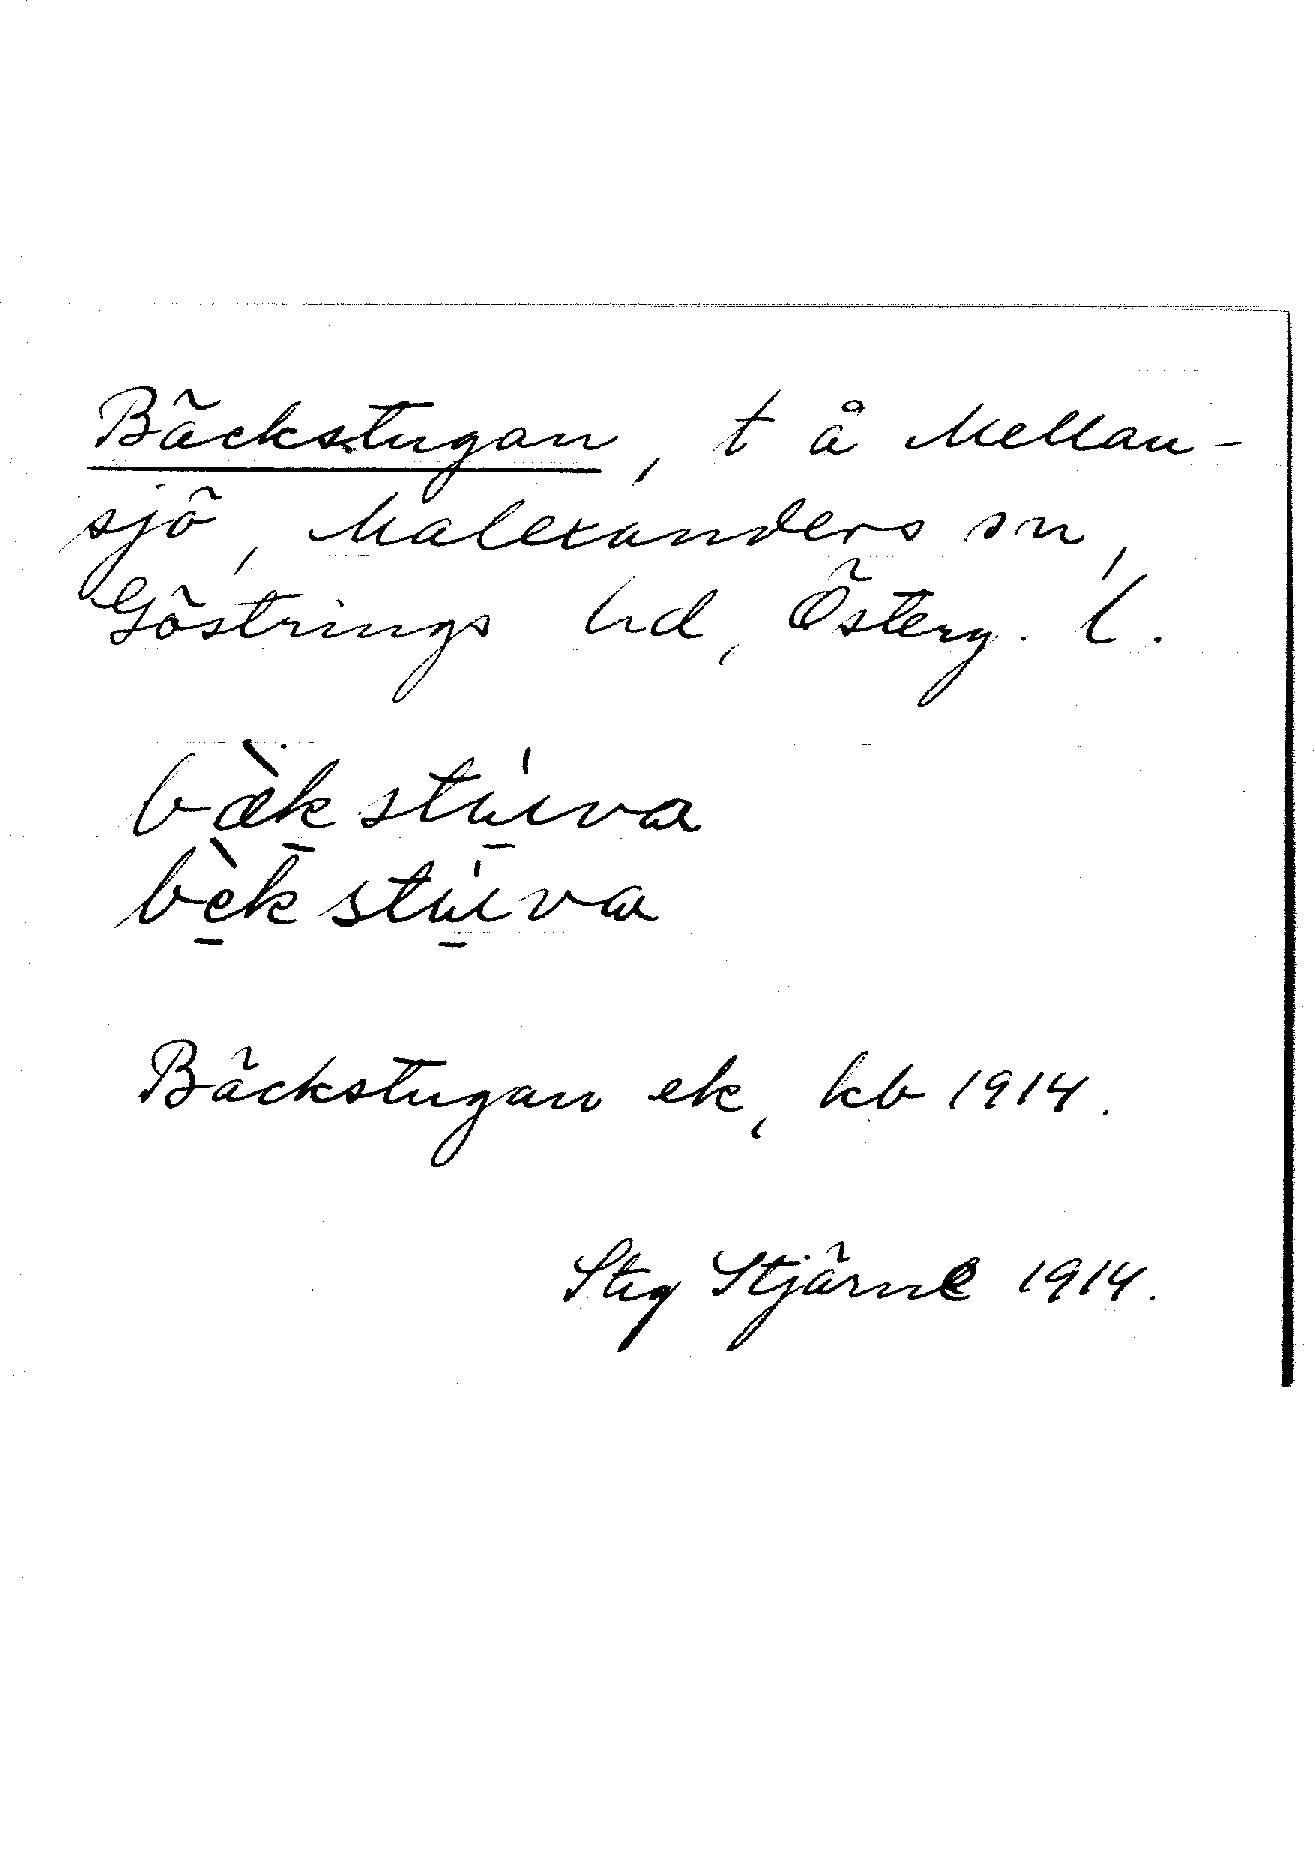 Bäckstugan, t å Mellan-
sjö, Malexanders sn,
Göstrings hd, Österg. l.
bæ̀k stúva
bèk stúva
Bäckstugan ek, kb 1914.
Stig Stjärne 1914.